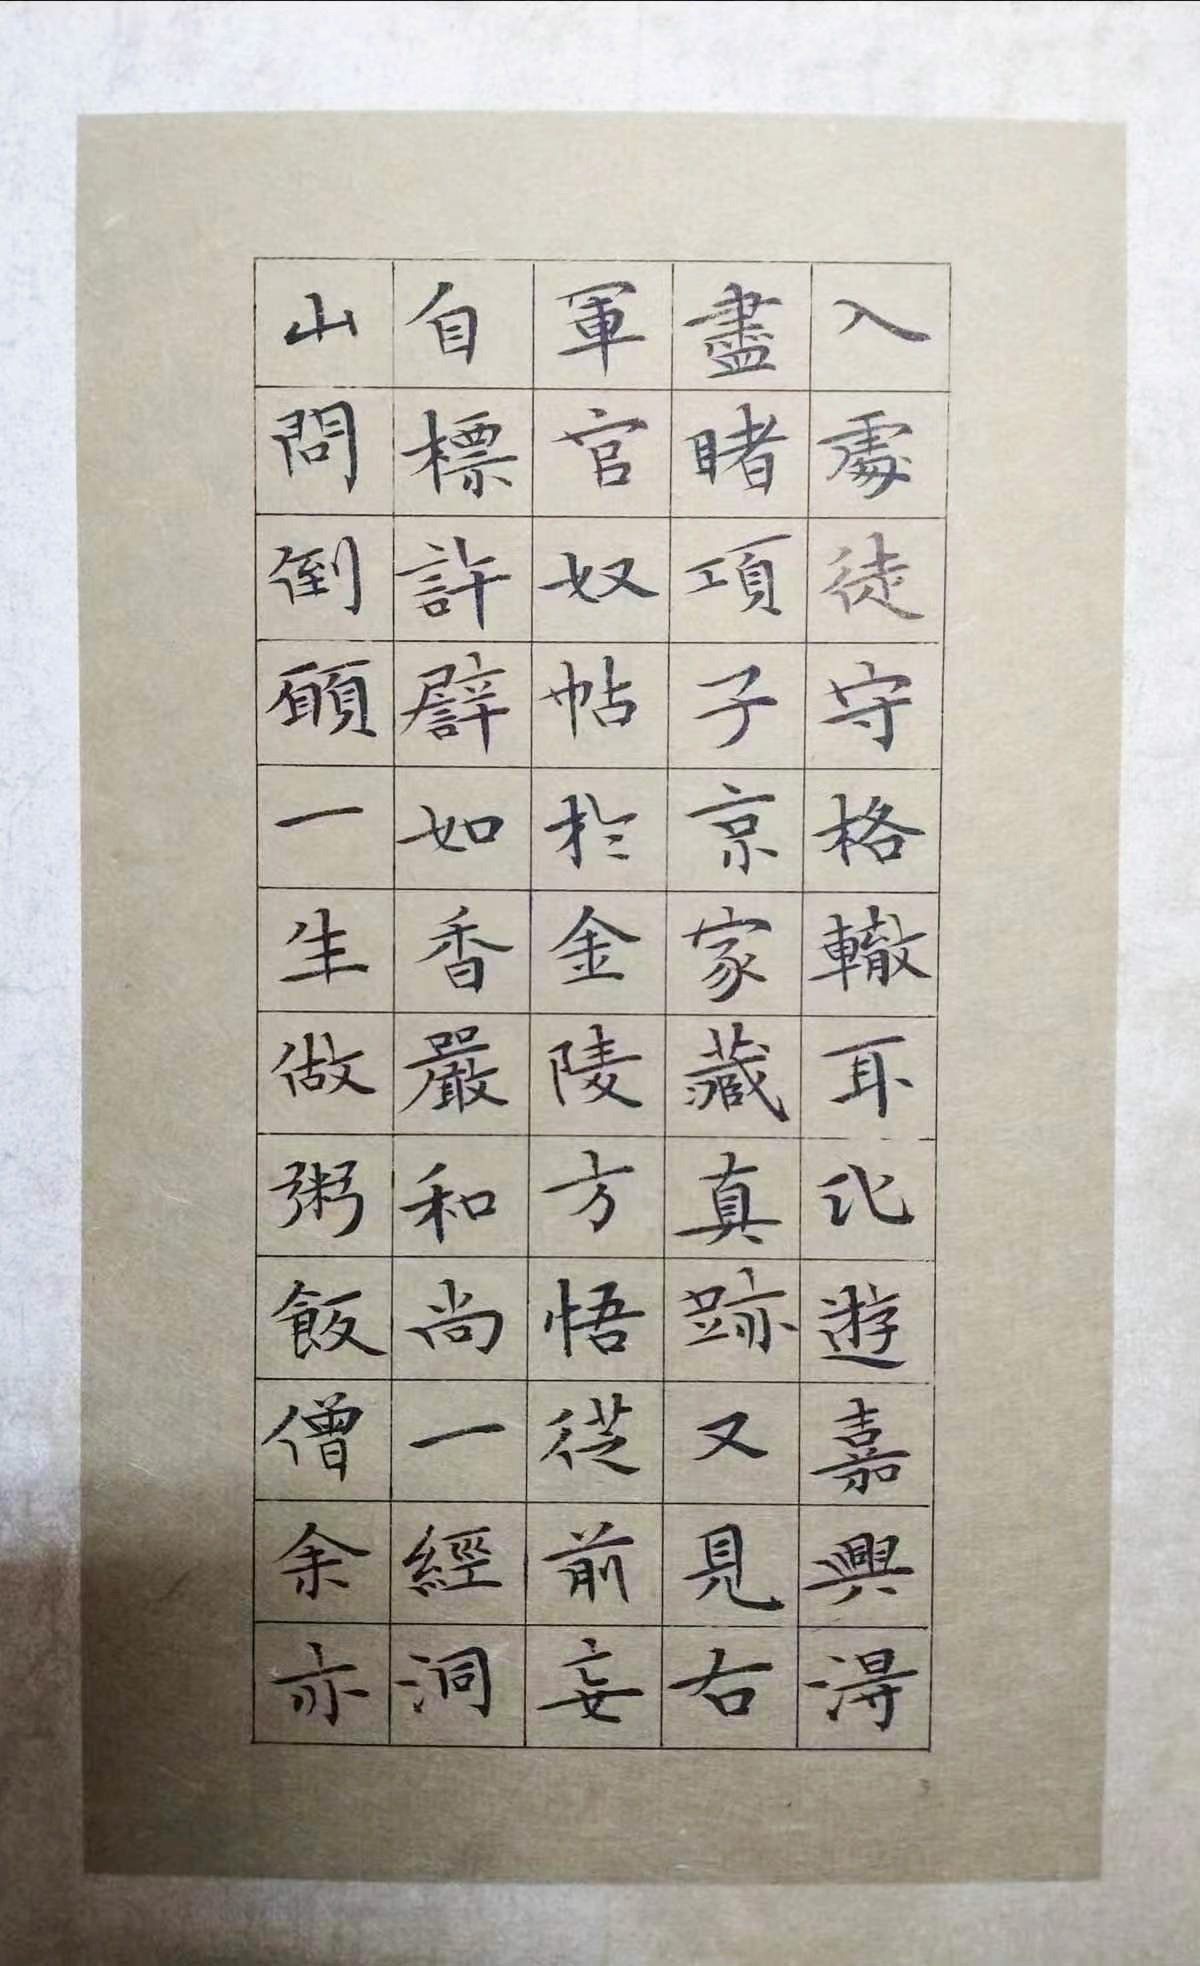 入處徒守格轍耳北遊嘉興淂
盡睹項子京家藏真跡又見右
軍官奴帖於金陵方悟從前妄
自標許譬如香嚴和尚一經洞
山問倒願一生做粥飯僧余亦